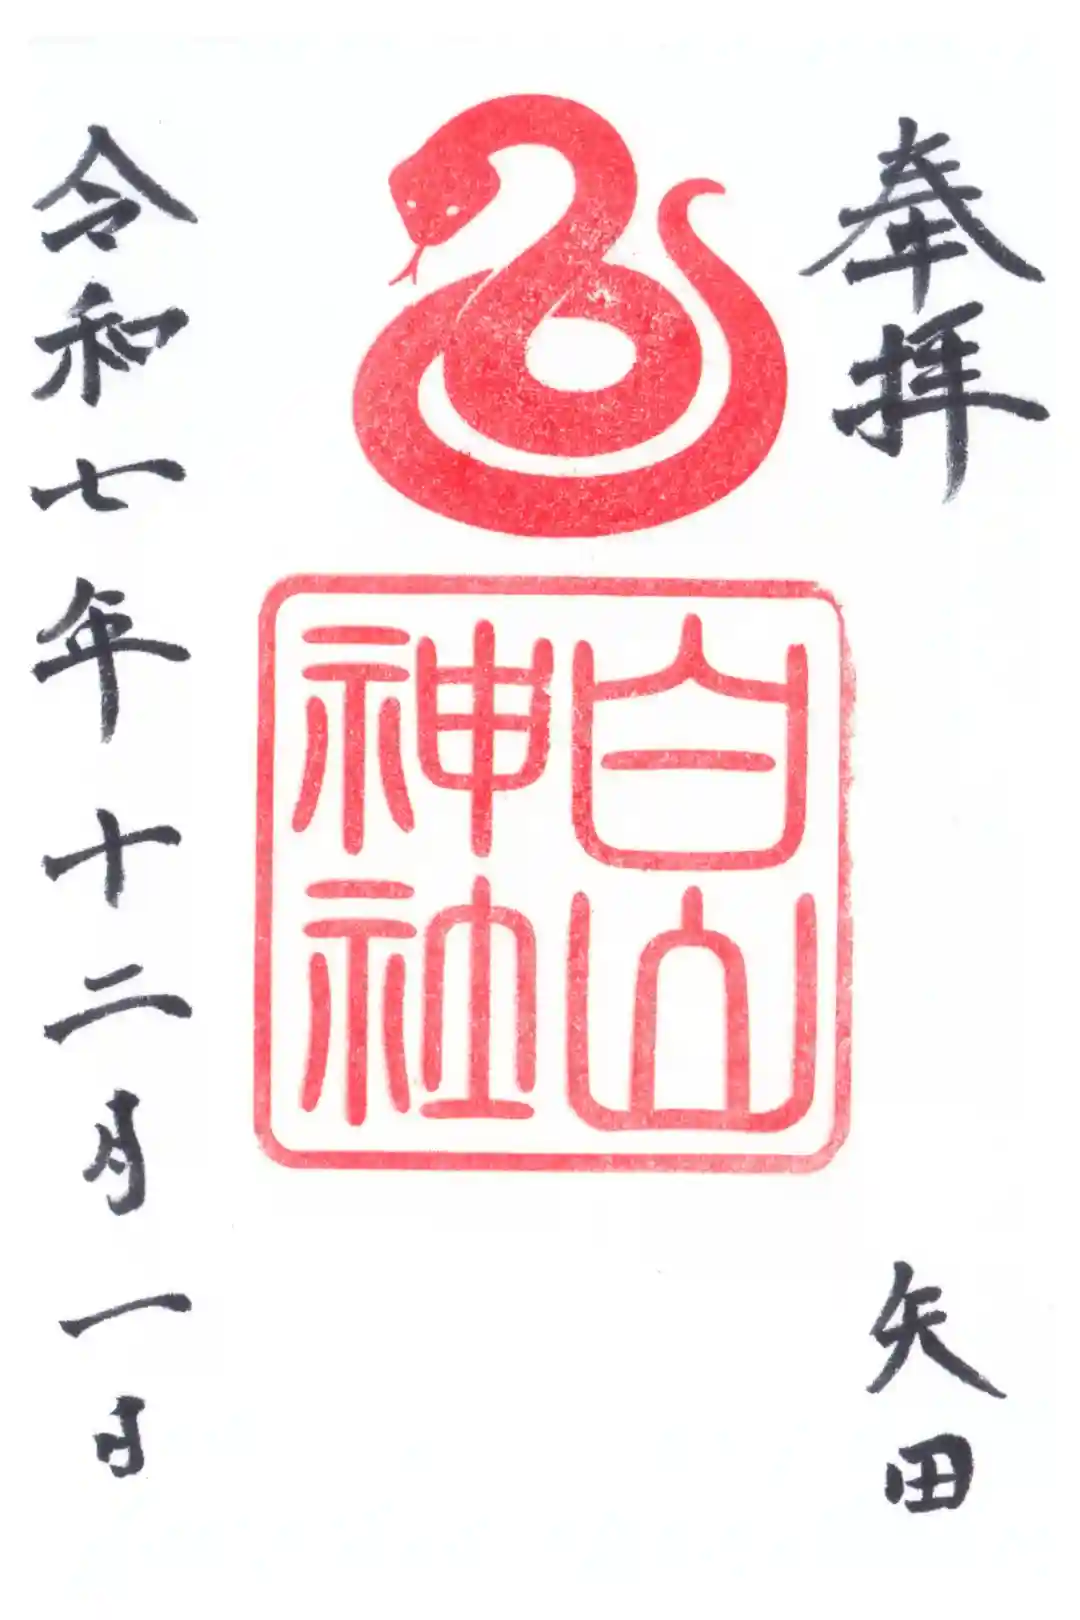 奉拝
矢田
白山
神社
令和七年十二月一日